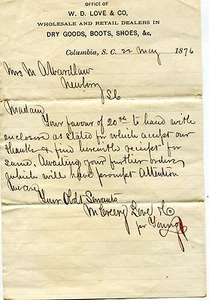 OFFICE OF
W. D. LOVE & CO,
WHOLESALE AND RETAIL DEALERS IN
DRY GOODS, BOOTS, SHOES, &c,
Columbia, S. C. 22 May 1876
Mrs M A Wardlaw
Newberry
S C
Madam
Your favour of 20th to hand with
enclosure as stated for which accept our
thanks & find herewith receipt for
same. Awaiting your further orders,
which will have prompt attention
We are
Your Obdt Servants
McCreery Love & Co
per